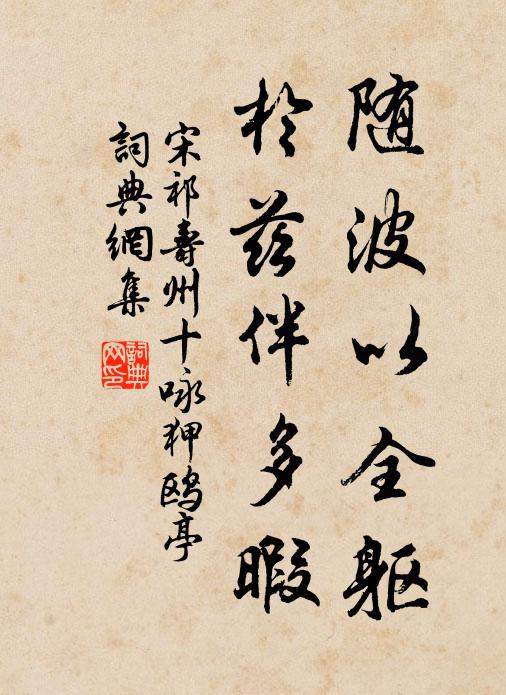 随波以全躯
於兹伴多暇
宋祁寿州十咏狎鸥亭
词典网集
词典网印